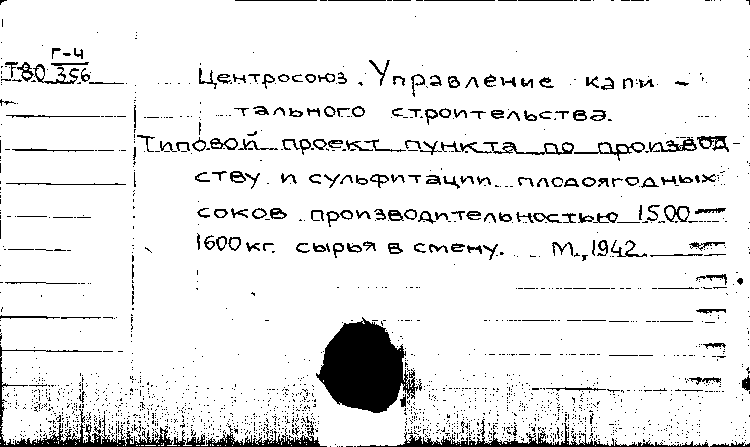 Г-4
Т80 356
Центросоюз. Управление капи-
тального строительства.
Типовой проект пункта по производ-
ству и сульфитации плодоягодных
соков производительностью 1500-
1600 кг. сырья в смену. М., 1942.